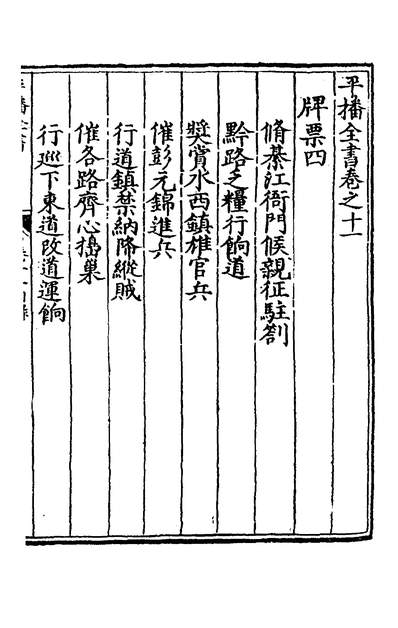 平播全書卷之十一
牌票四
脩綦江衙門候親征駐劄
黔路乏糧行餉道
獎賞水西鎮雄官兵
催彭元錦進兵
行道鎮禁納降縱賊
催各路齊心搗巢
行巡下東道改道運餉